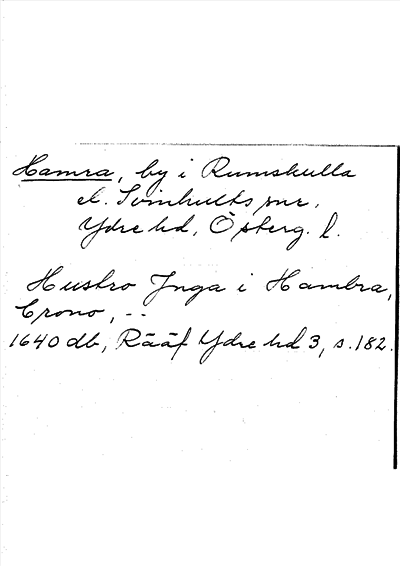 Hamra, by i Rumskulla
el. Svinhults snr,
Ydre hd, Österg. l.
Hustro Jnga i Hambra,
Crono, --
1640 db, Rääf Ydre hd 3, s. 182.